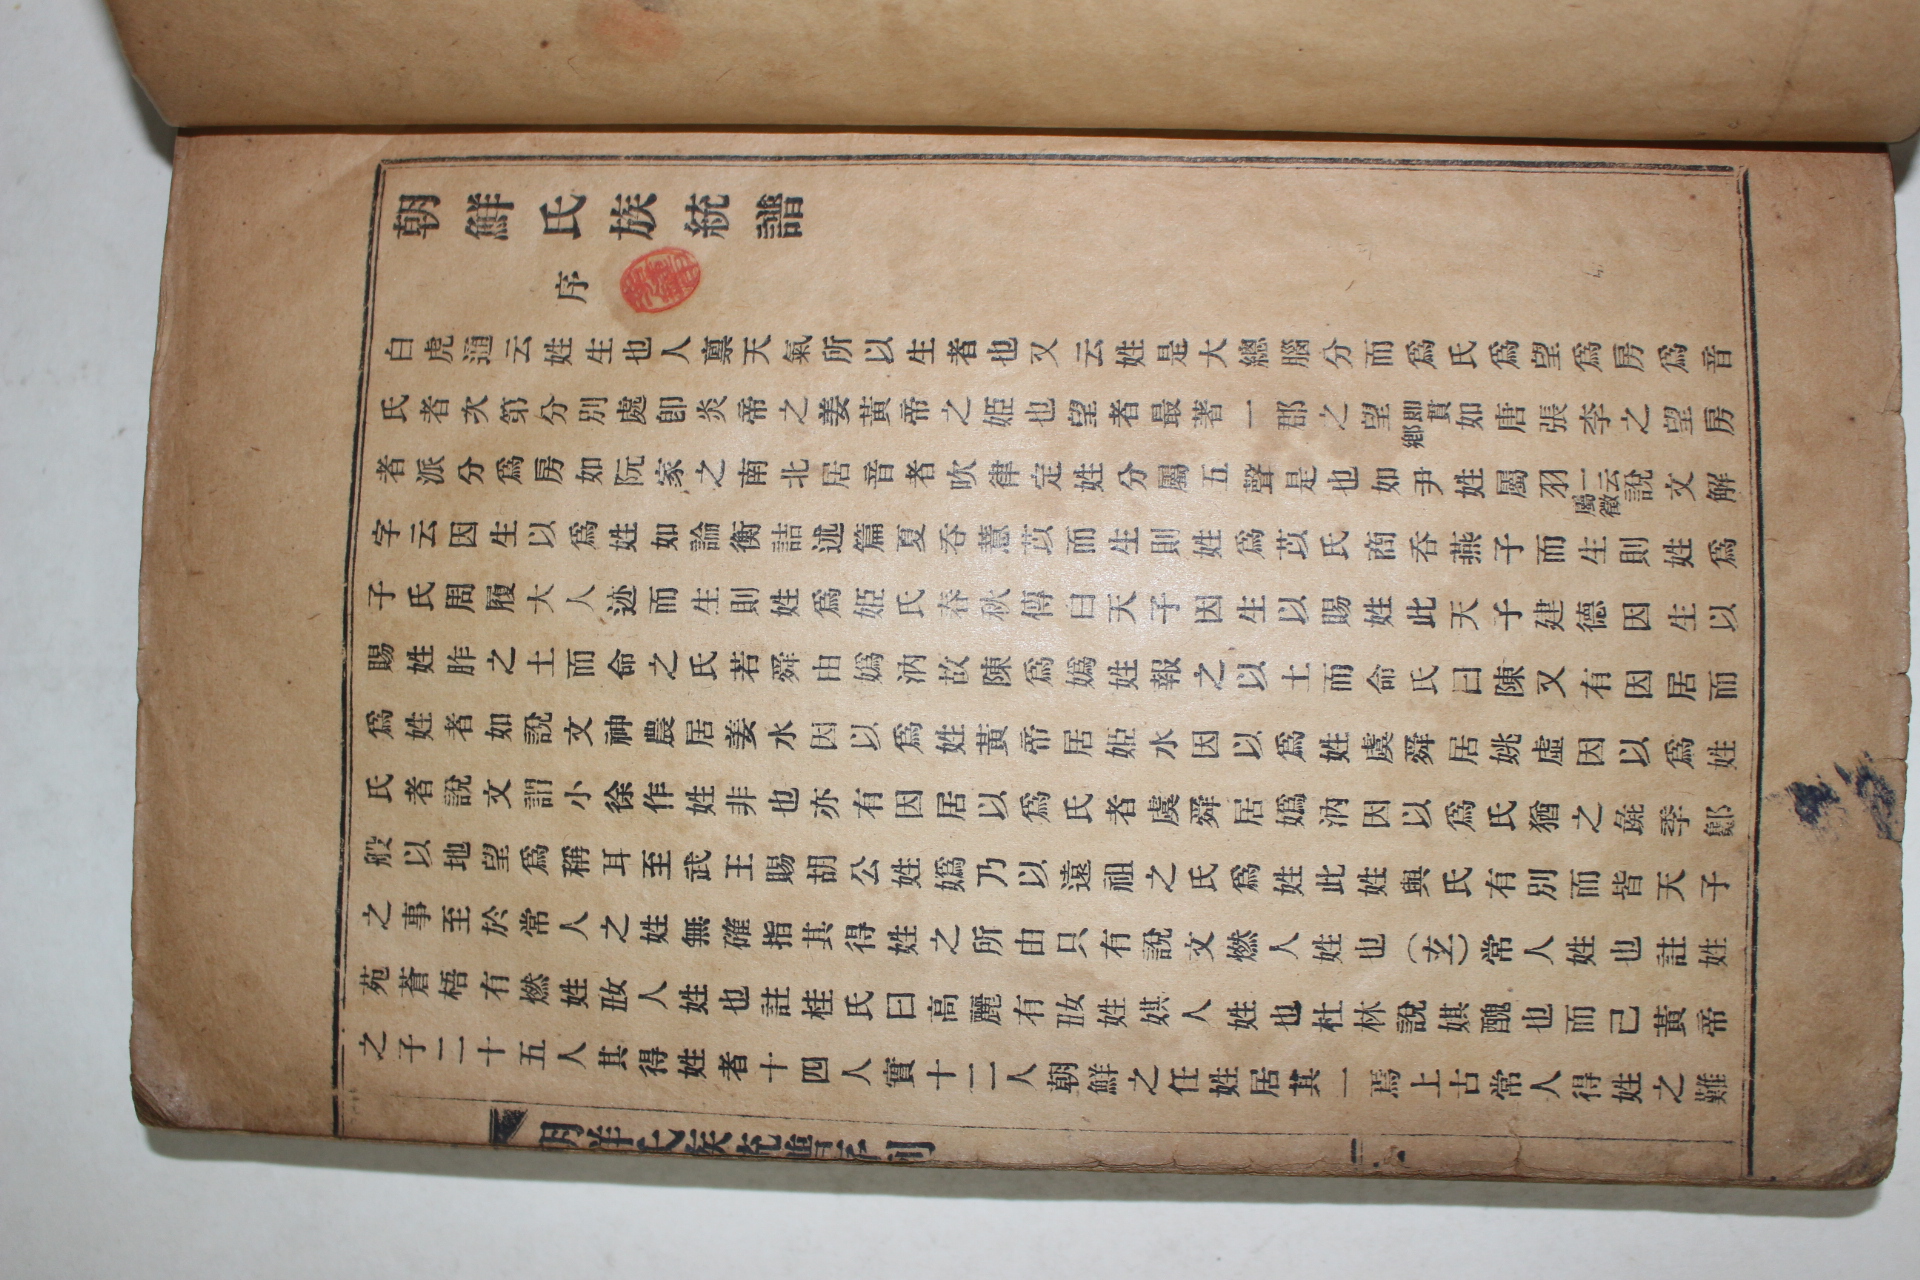 朝鮮氏族統譜
序
白虎通云姓生也人稟天氣所以生者也又云姓是大總腦分而爲氏爲望爲房爲音
氏者次第分別處卽炎帝之姜黃帝之姬也望者最著一郡之望卽鄕貫如唐張李之望房
者派分爲房如阮家之南北居音者吹律定姓分屬五聲是也如尹姓屬羽一云屬徵說文解
字云因生以爲姓如論衡詰述篇夏呑薏苡而生則姓爲苡氏商呑燕子而生則姓爲
子氏周履大人迹而生則姓爲姬氏春秋傳曰天子因生以賜姓此天子建德因生以
賜姓胙之土而命之氏若舜由嬀汭故陳爲嬀姓報之以土而命氏曰陳又有因居而
爲姓者如說文神農居姜水因以爲姓黃帝居姬水因以爲姓虞舜居姚虛因以爲姓
氏者說文謂小徐作姓非也亦有因居以爲氏者虞舜居嬀汭因以爲氏猶之毚季鄭
般以地望爲稱耳至武王賜胡公姓嬀乃以遠祖之氏爲姓此姓與氏有別而皆天子
之事至於常人之姓無確指其得姓之所由只有說文燃人姓也(玄)常人姓也註姓
苑蒼梧有燃姓㚼人姓也註桂氏曰高麗有㚼姓娸人姓也杜林說娸醜也而已黃帝
之子二十五人其得姓者十四人實十二人朝鮮之任姓居其一焉上古常人得姓之難
朝鮮氏族統譜序列